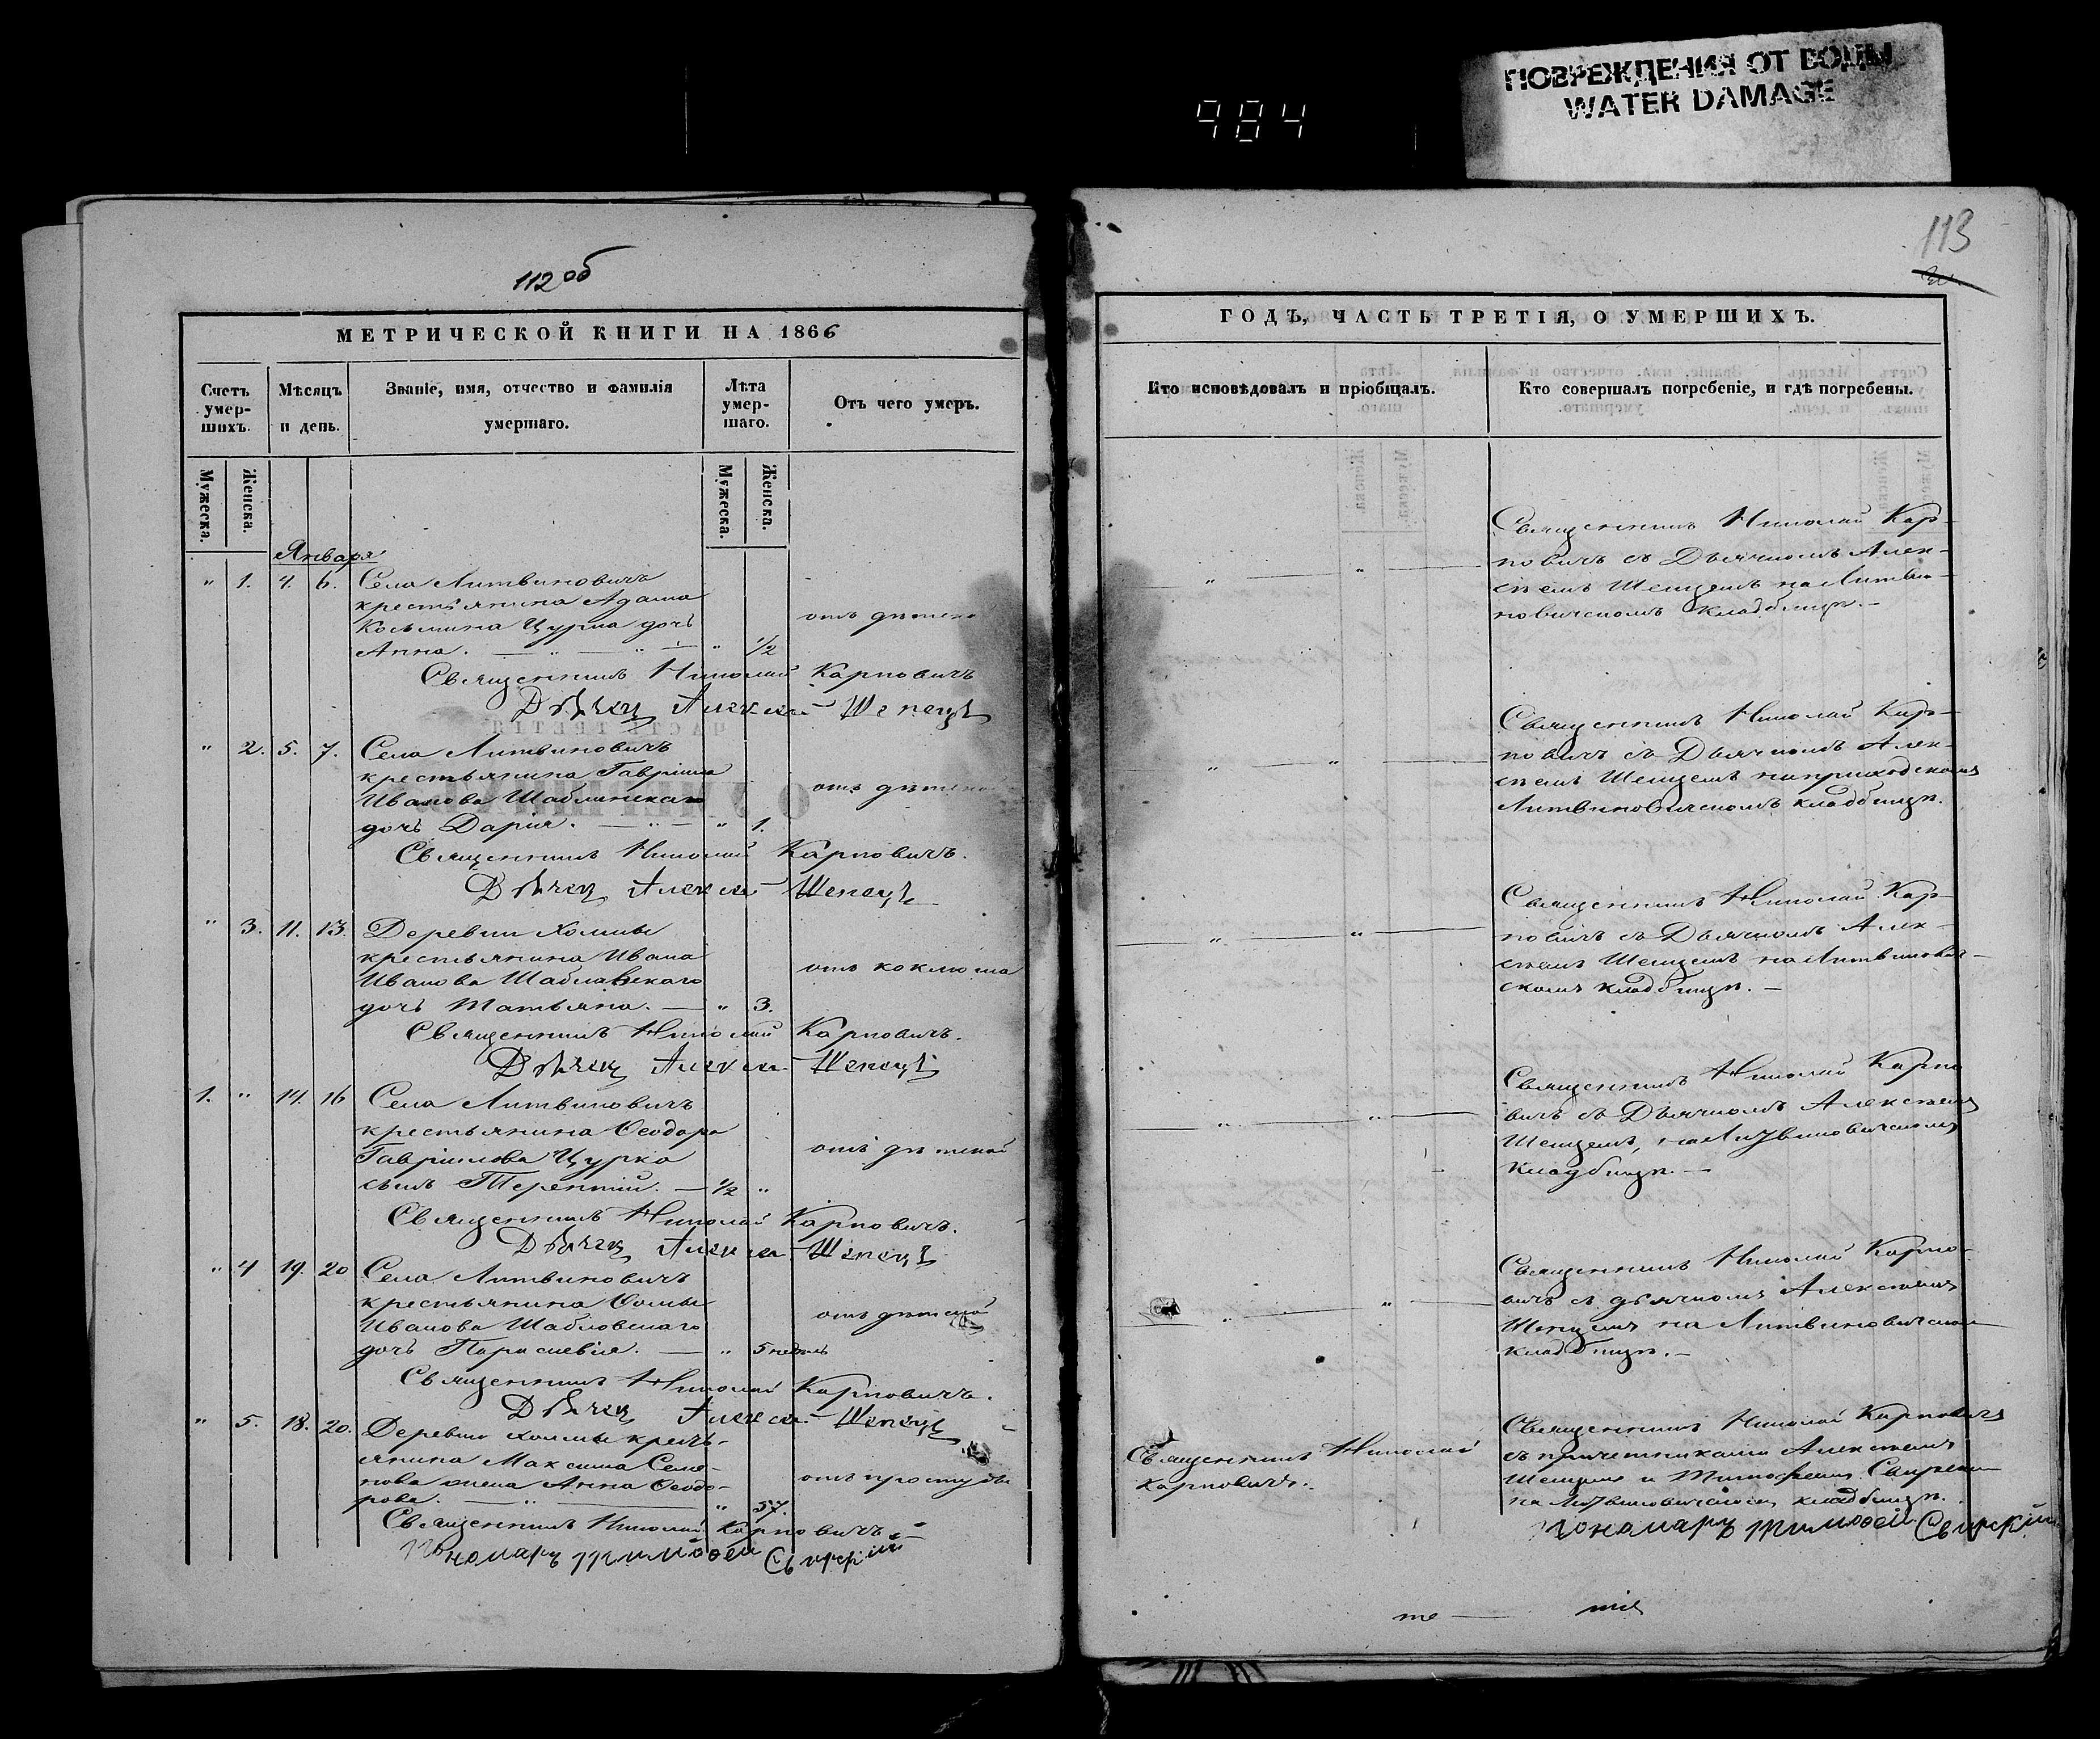 ПОВРЕЖДЕНИЯ ОТ ВОДЫ
WATER DAMAGE
984
112 об
МЕТРИЧЕСКОЙ КНИГИ НА 1866
Счетъ умер-шихъ.
Мѣсяцъ и день.
Званіе, имя, отчество и фамилія умершаго.
Лѣта умер-шаго.
Отъ чего умеръ.
Мужеска. Женска. Мужеска. Женска.
Января
" 1. 4. 6. Села Литвиновичъ
крестьянина Адама
Косьмина Цурка дочь
отъ дѣтско
Анна. — " — " — " 1/2
Священникъ Николай Карповичъ
Дьячекъ Алексѣй Шепецъ
" 2. 5. 7. Села Литвиновичъ
крестьянина Гавріила
Иванова
отъ дѣтско
дочь Дарія. — " — " 1.
Священникъ Николай Карповичъ.
Дьячекъ Алексѣй Шепецъ
" 3. 11. 13. Деревни Холмы
крестьянина Ивана
Иванова
отъ коклюша
дочь Татьяна. — " 3.
Священникъ Николай Карповичъ.
Дьячекъ Алексѣй Шепецъ
1. " 14. 16 Села Литвиновичъ
крестьянина Ѳеодора
Гавріилова Цурко
отъ дѣтской
сынъ Терентій. — 1/2 "
Священникъ Николай Карповичъ.
Дьячекъ Алексѣй Шепецъ
" 4 19. 20 Села Литвиновичъ
крестьянина Ѳомы
Иванова Шабловскаго
отъ дѣтской
дочь Параскевія. — " 5 недѣль
Священникъ Николай Карповичъ.
Дьячекъ Алексѣй Шепецъ
" 5. 18. 20. Деревни Холмы кресть-
янина Максима Семе-
нова жена Анна Ѳеодо-
отъ простуды
рова. — " — " 57.
Священникъ Николай Карповичъ
Пономаръ Тимофей Свирскій
113
ГОДЪ, ЧАСТЬ ТРЕТІЯ, О УМЕРШИХЪ.
Кто исповѣдовалъ и пріобщалъ.
Кто совершалъ погребеніе, и гдѣ погребены.
Священникъ Николай Кар-
повичъ съ Дьячкомъ Алек-
сѣемъ Шепцемъ на Литви-
новичскомъ кладбищѣ. —
Священникъ Николай Кар-
повичъ съ Дьячкомъ Алек-
сѣемъ Шепцемъ на приходскомъ
Литвиновичскомъ кладбищѣ.
Священникъ Николай Кар-
повичъ съ Дьячкомъ Алек-
сѣемъ Шепцемъ на Литвинович-
скомъ кладбищѣ. —
Священникъ Николай Карпо
вичъ съ Дьячкомъ Алексѣемъ
Шепцемъ, на Литвиновичскомъ
кладбищѣ. —
Священникъ Николай Карпо-
вичъ съ дьячкомъ Алексѣемъ
Шепцемъ на Литвиновичском
кладбищѣ. —
Священникъ Николай
Карповичъ.
Священникъ Николай Карповичъ
съ причетниками Алексѣемъ
Шепцемъ и Тимофеемъ Свирским
на Литвиновичскомъ кладбищѣ.
Пономаръ Тимофей Свирскій